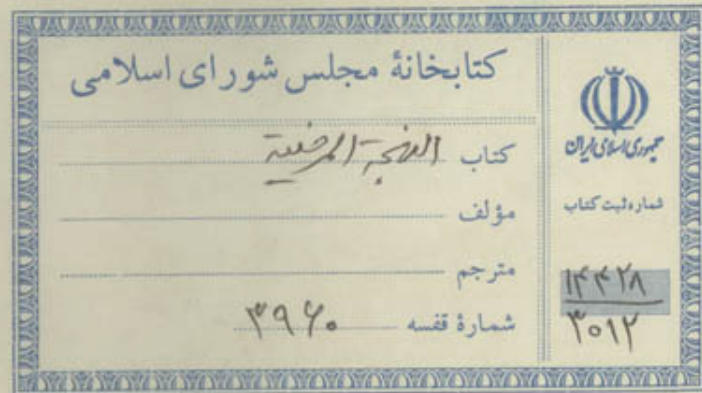 کتابخانهٔ مجلس شورای اسلامی
کتاب البهجة المرضیة
مؤلف
مترجم
شمارهٔ قفسه ۳۹۶۰
جمهوری اسلامی ایران
شماره ثبت کتاب
۱۴۴۲۸
۳۰۱۲